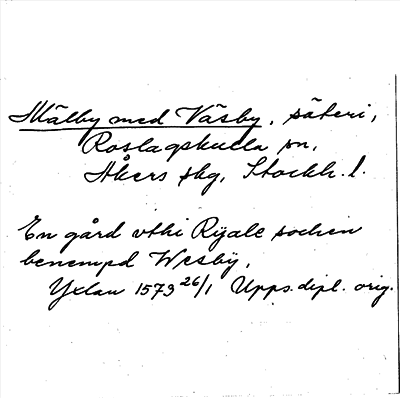 Mälby med Väsby, säteri,
Roslagskulla sn,
Åkers skg, Stockh. l.
En gård vthi Rÿale sochen
benempd Wesbÿ,
Yxlau 1573 26/1 Upps. dipl. orig.